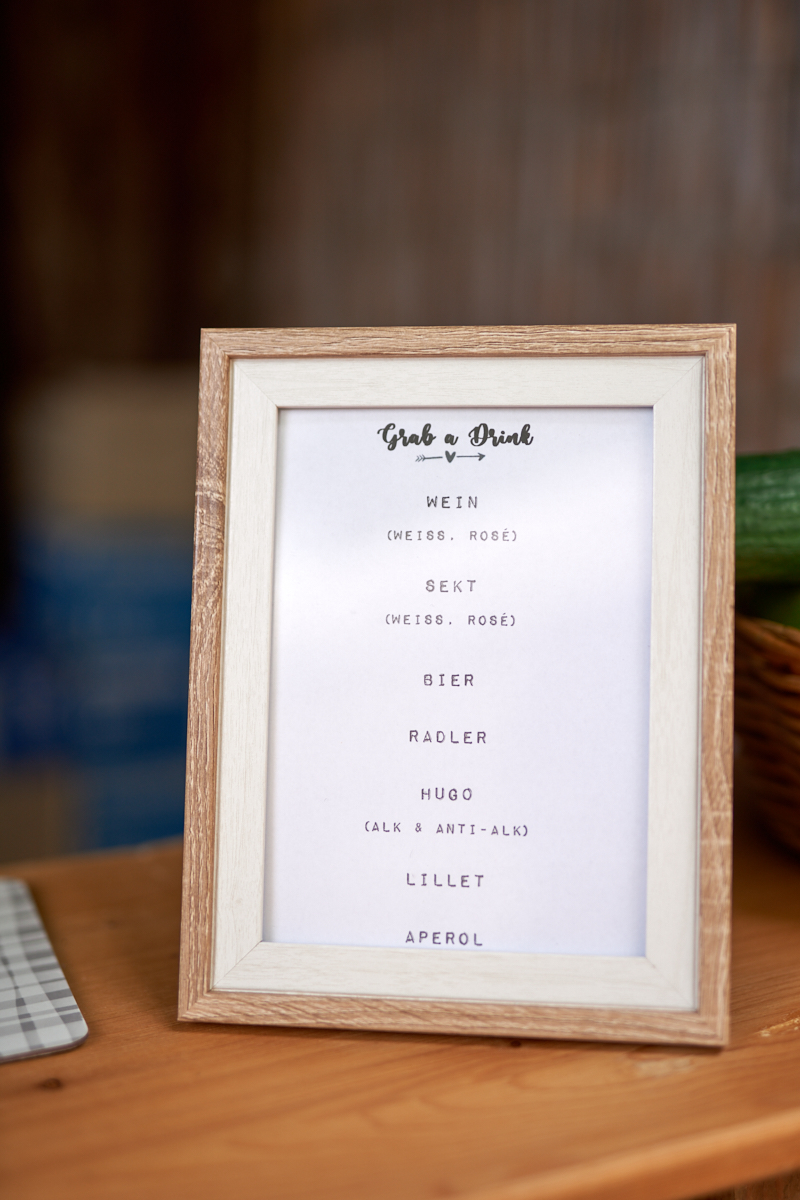 Grab a Drink
WEIN
(WEISS. ROSÉ)
SEKT
(WEISS. ROSÉ)
BIER
RADLER
HUGO
(ALK & ANTI-ALK)
LILLET
APEROL